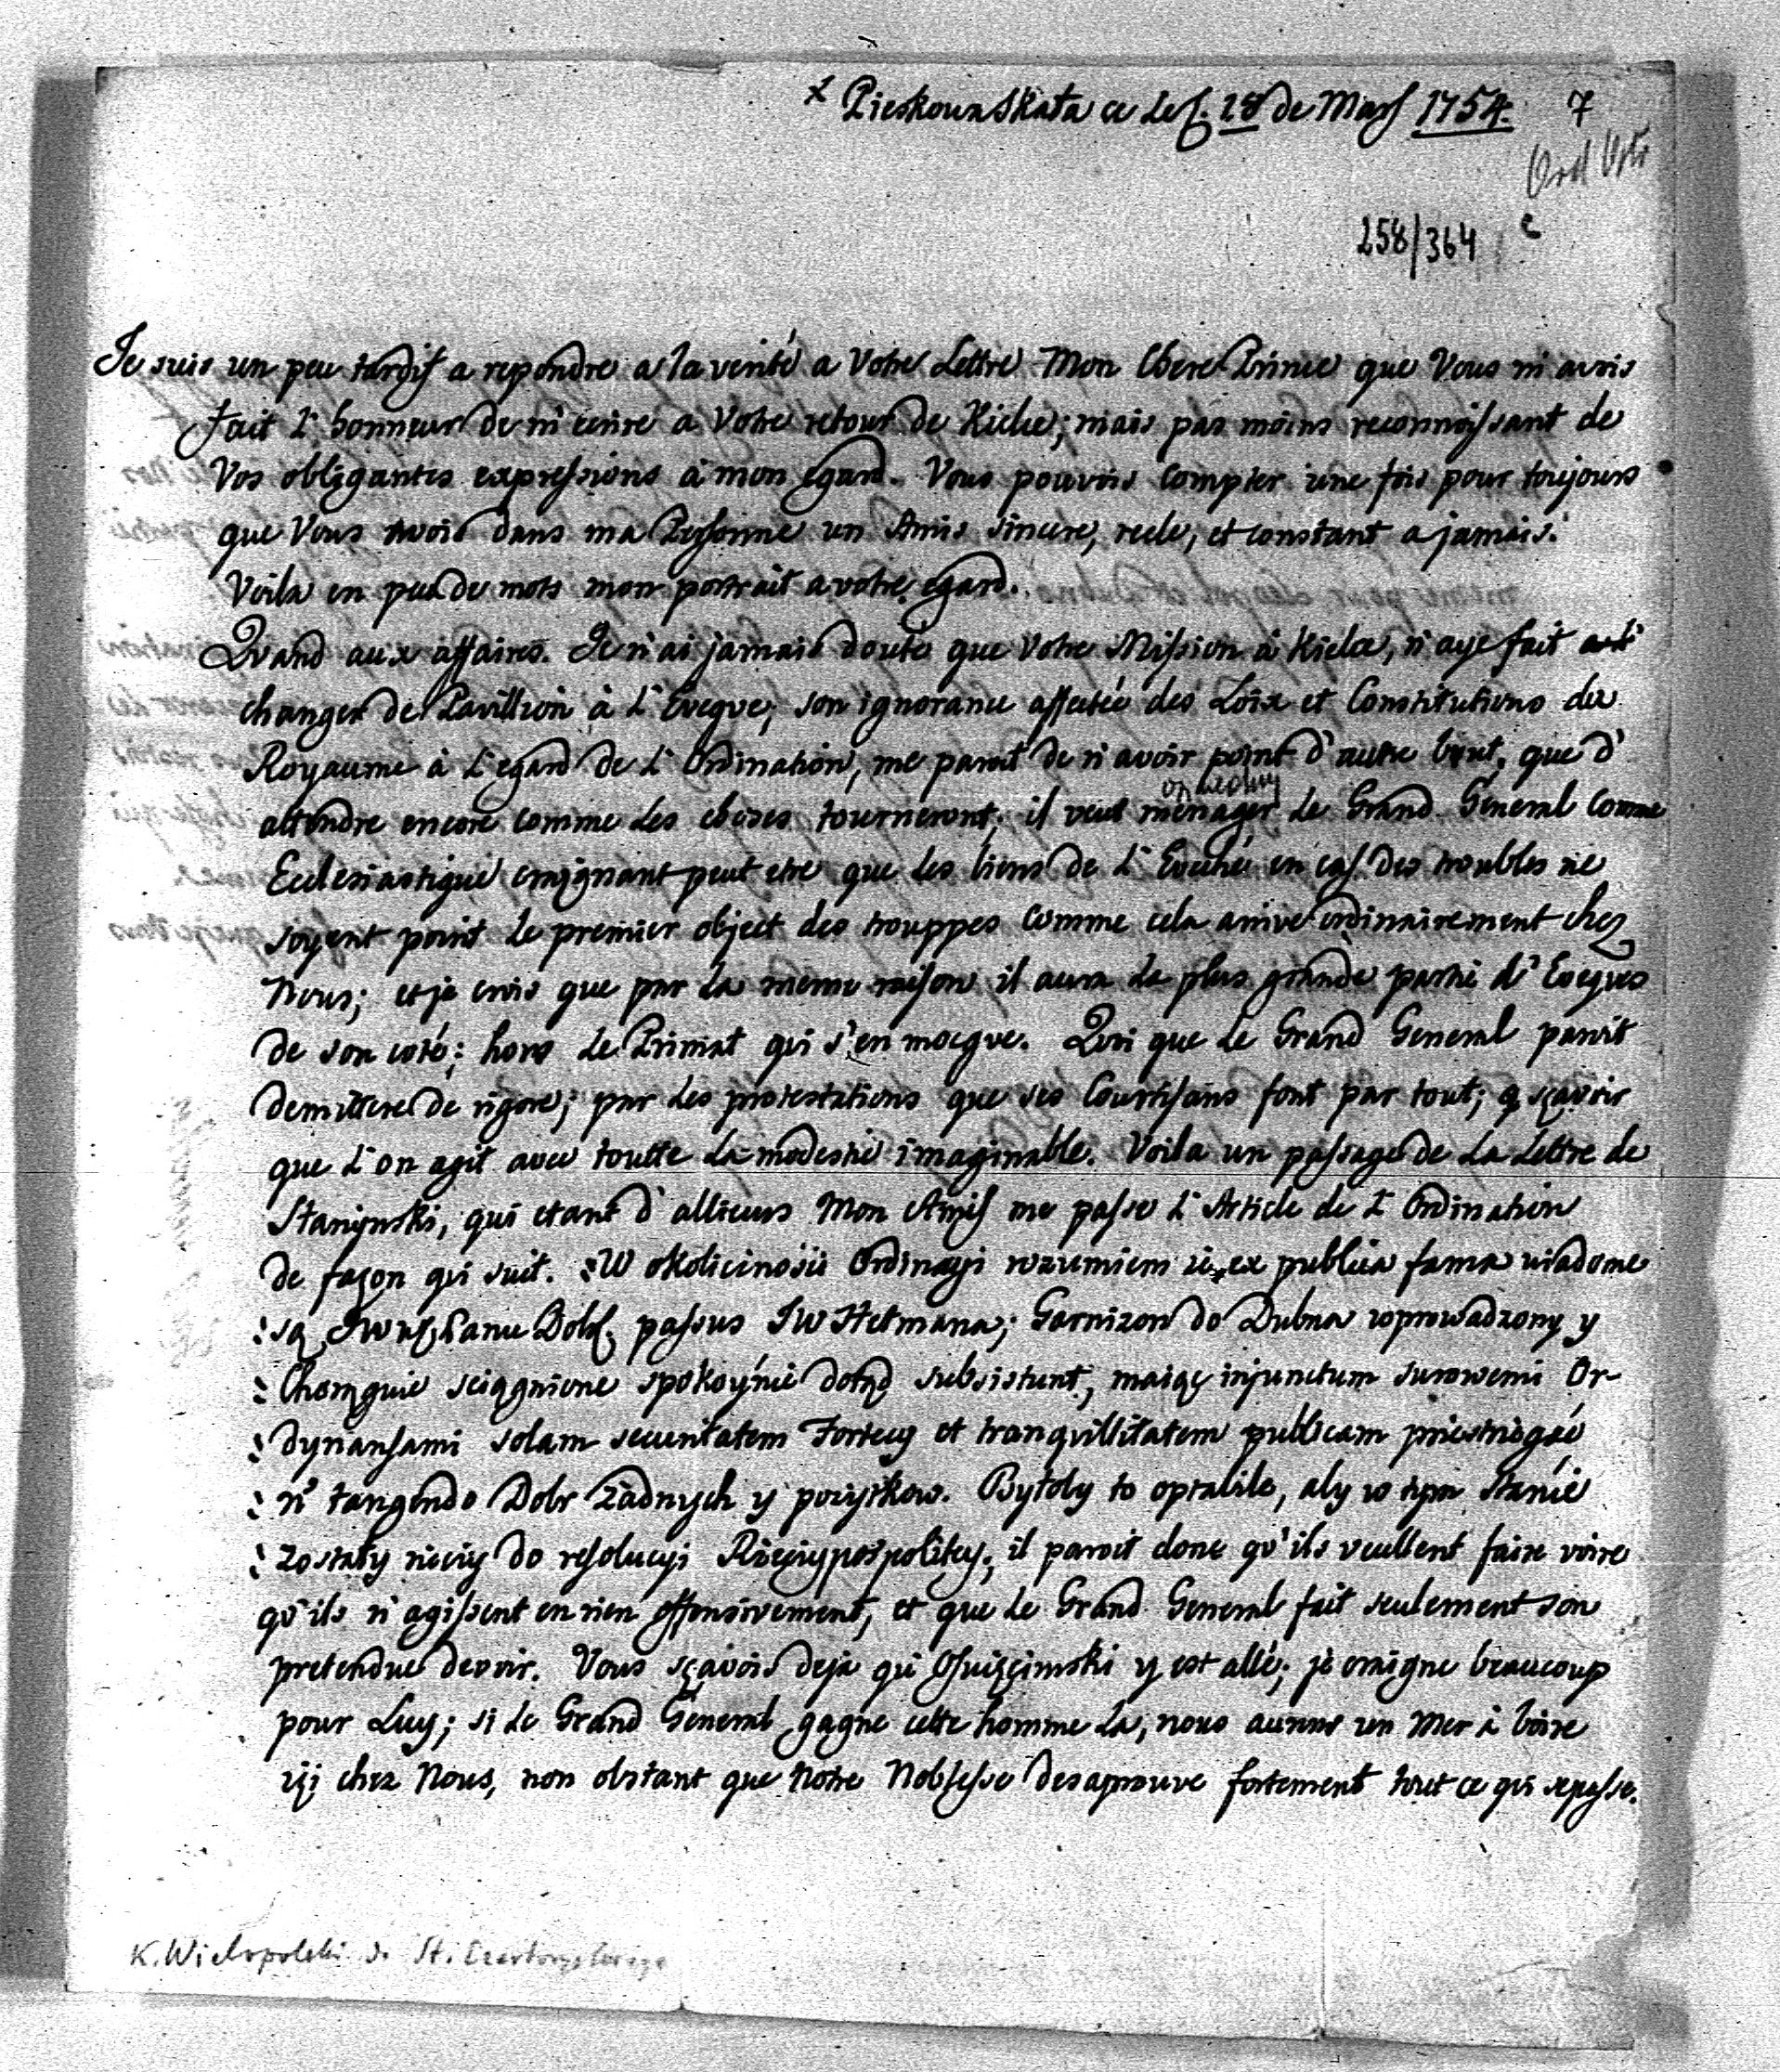 Pieskowa Skała ce Les. 28 de Mars 1754. 7
258/364
Je suis un peu tardif a repondre a la verité a Votre Lettre Mon Chere Prince que Vous m'avois
fait l'honneur de m'ecrire a Votre retour de Kielce; mais pas moins reconnoissant de
Vos obligantes expressions à mon egard. Vous pouvois compter une fois pour toujours
que Vous avois dans ma Personne un Amis sincere, reele, et constant a jamais.
Voila en peu de mots mon portrait a votre egard.
Quand aux affaires. Je n'ai jamais douté que Votre Mission à Kielce, n'aye fait
changer de Pavillion à L'Eveqve; son ignorance affectée des Loix et Constitutions du
Royaume à L'egard de L'Ordination, me paroit de n'avoir point d'autre but, que d'
attendre encore comme les choses tourneront; il veut menager le Grand General comme
Ecclesiastique craignant peut etre que les biens de L'Eveché en cas des troubles ne
soyent point le premier object des trouppes comme cela arrive ordinairement chez
Nous; et je crois que par la meme raison il aura la plus grande partie d'Eveqves
de son coté; hors le Primat qui s'en mocqve. Quoi que le Grand General paroit
demittere de rigore; par les protestations que ses Courtisans font par tout; a sçavoir
que L'on agit avec toutte la modestie imaginable. Voila un passage de la Lettre de
Staniynski, qui etant d'allieurs Mon Amis me passe L'Article de L'Ordination
de façon qui suit. : W okolicznosci Ordinacyi rozumiem iz ex publica fama wiadome
: są JW Panu Dobr. passus JW Hetmana; Garnizon do Dubna wprowadzony y
: Chorągwie sciągnione spokoynie dotąd subsistunt, maiąc injunctum surowemi Or-
: dynansami solam securitatem Fortecy et tranqvillitatem publicam przestrzegać
: n' tangendo Dobr żadnych y pozytkow. Byłoby to optabile, aby w tym stanie
: zostały rzeczy do resolucyi Rzeczypospolitey; il paroit donc qu'ils veullent faire voire
qu'ils n'agissent en rien offensivement, et que le Grand General fait seulement son
pretendue devoir. Vous sçavois deja qu' Oswięcimski y est allé; je craigne beaucoup
pour Luy; si le Grand General gagne cette homme la, nous aurons un Mer à boire
içi chez Nous, non obstant que Notre Noblesse desaprouve fortement tout ce qui se passe.
K. Wielopolski do St. Czartoryskiego